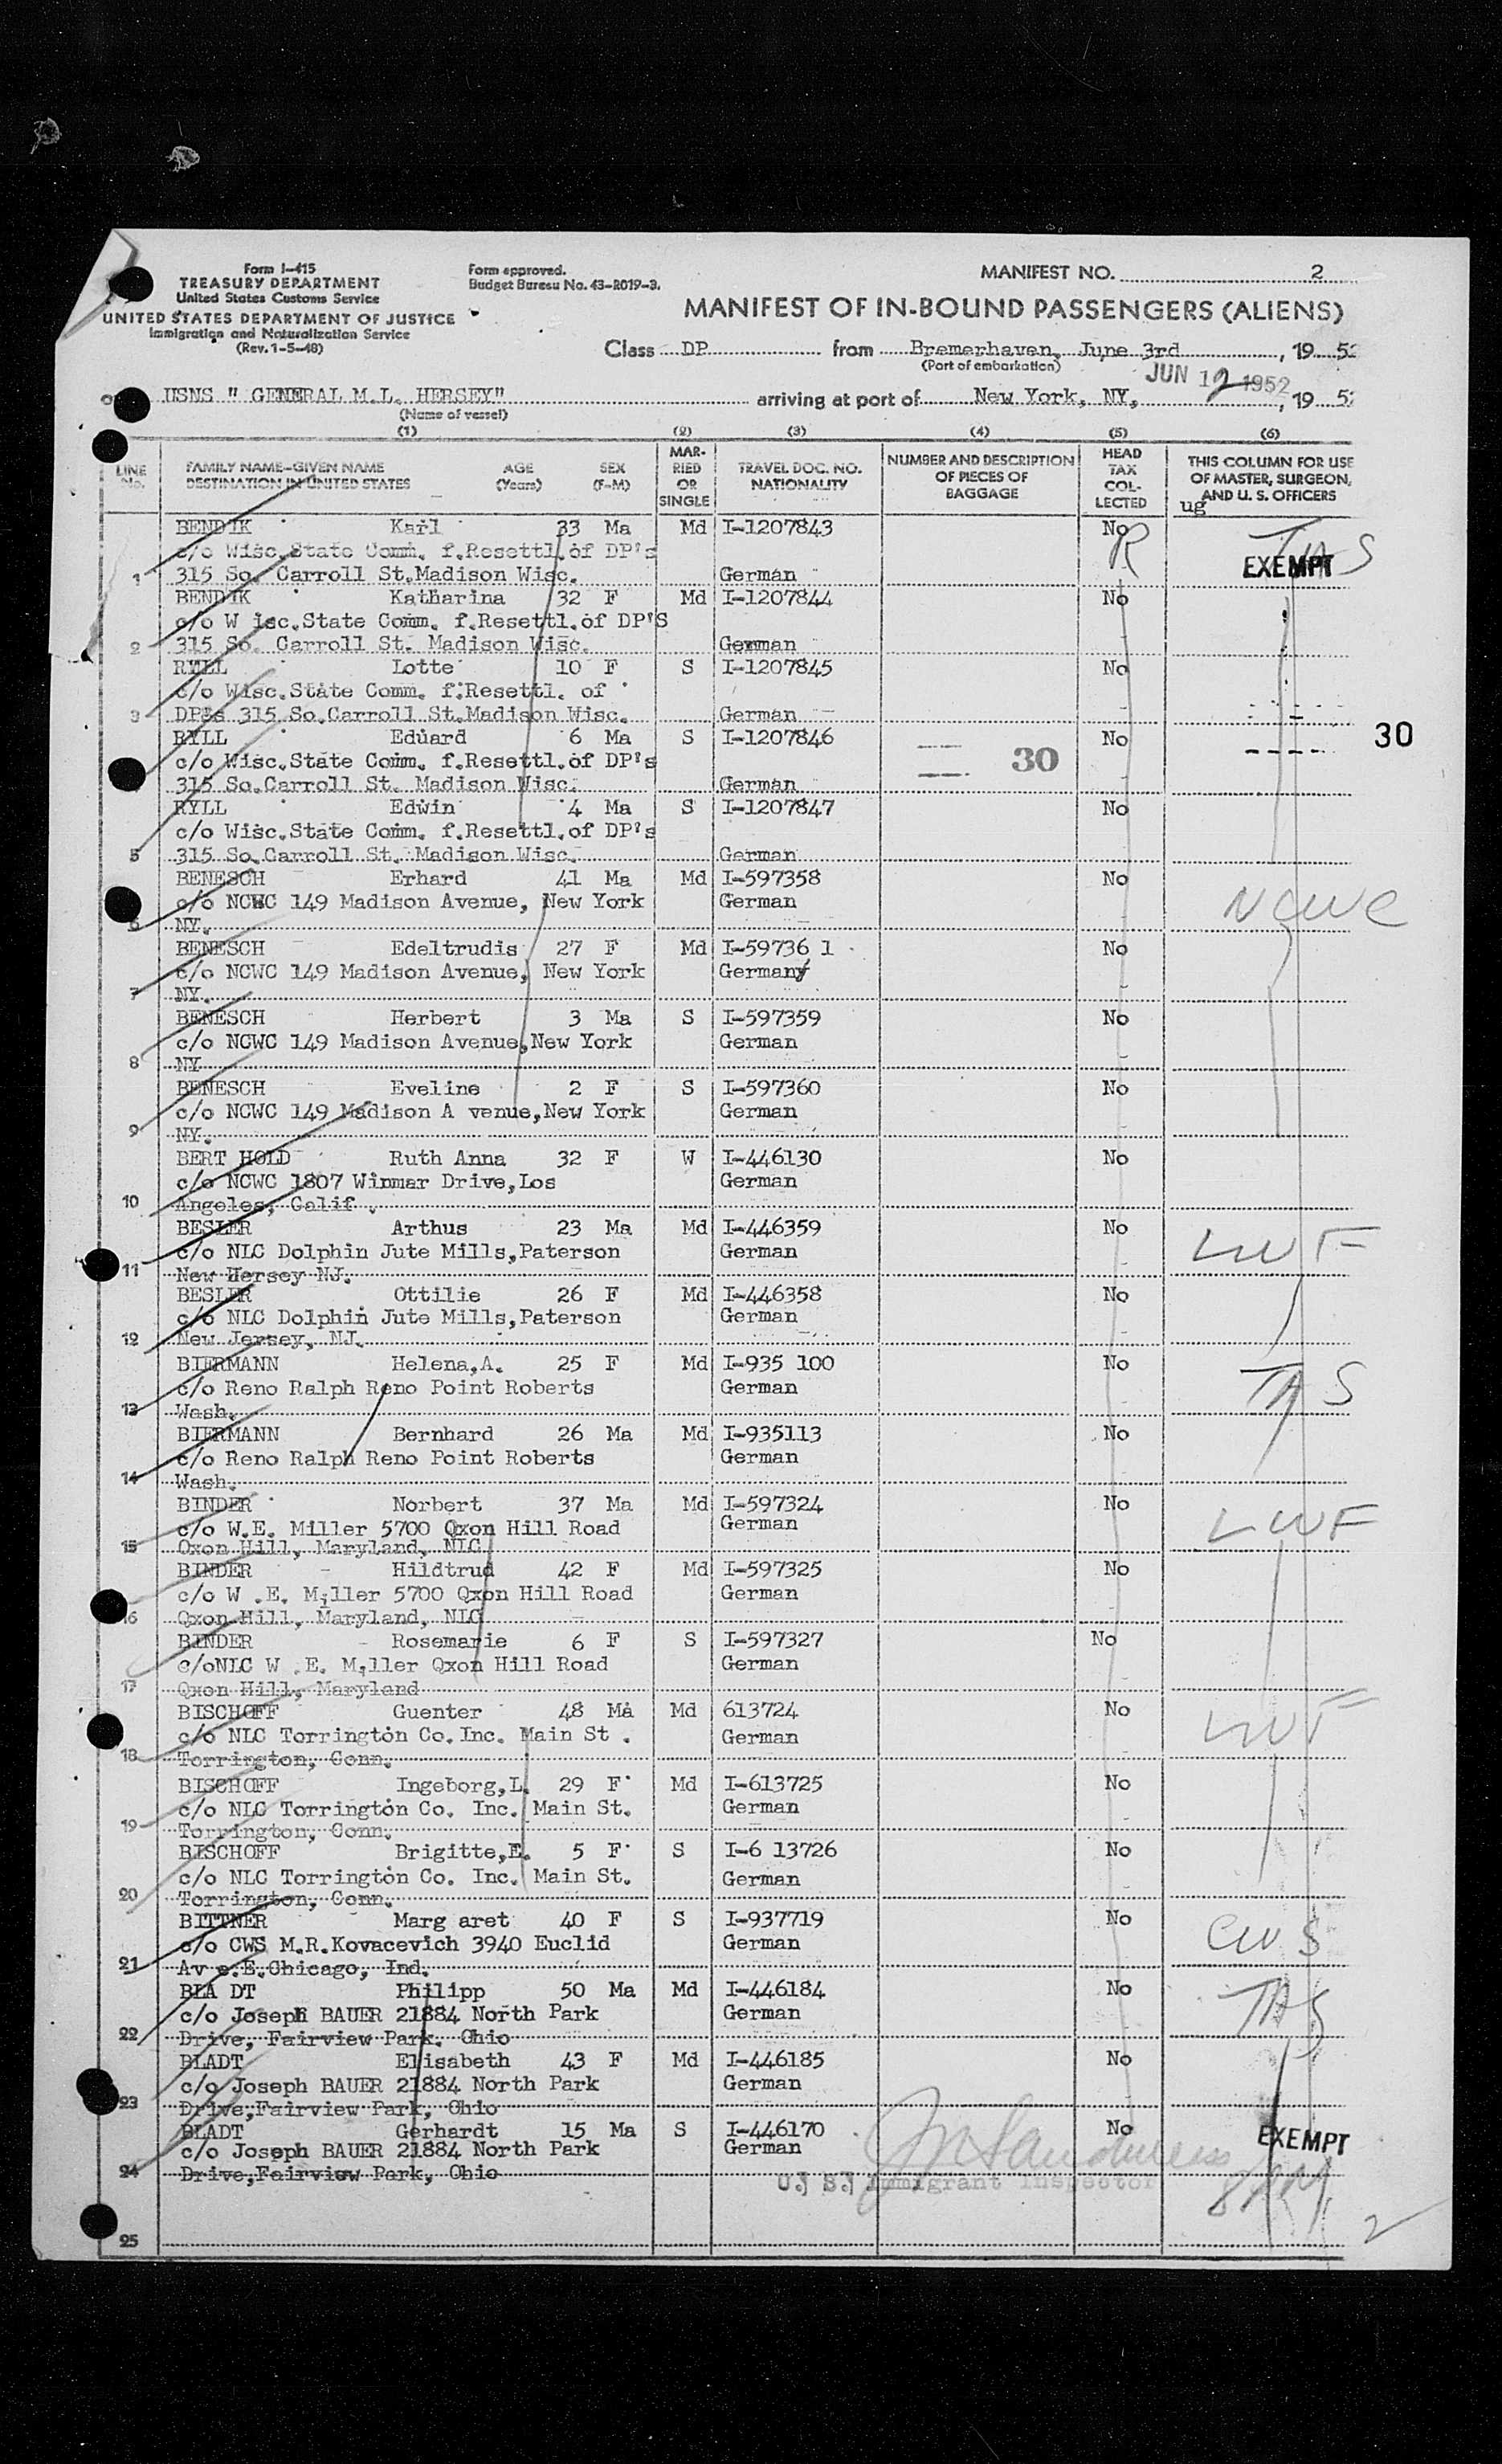 Form I-415
TREASURY DEPARTMENT
United States Customs Service
UNITED STATES DEPARTMENT OF JUSTICE
Immigration and Naturalization Service
(Rev. 1-5-48)
Form approved.
Budget Bureau No. 43-R019-3.
MANIFEST NO. 2
MANIFEST OF IN-BOUND PASSENGERS (ALIENS)
Class DP from Bremerhaven, June 3rd, 19 52
(Port of embarkation)
JUN 12 1952
USNS " GENERAL M.L. HERSEY" arriving at port of New York, NY, , 19 52
(Name of vessel)
(1) (2) (3) (4) (5) (6)
LINE No. FAMILY NAME-GIVEN NAME DESTINATION IN UNITED STATES AGE (Years) SEX (F-M) MARRIED OR SINGLE TRAVEL DOC. NO. NATIONALITY NUMBER AND DESCRIPTION OF PIECES OF BAGGAGE HEAD TAX COLLECTED THIS COLUMN FOR USE OF MASTER, SURGEON, AND U. S. OFFICERS
ug
BENDIK Karl 33 Ma Md I-1207843 No R TAS
c/o Wisc.State Comm. f.Resettl.of DP's EXEMPT
1 315 So. Carroll St.Madison Wisc. German
BENDIK Katharina 32 F Md I-1207844 No
c/o W isc.State Comm. f.Resettl.of DP'S
2 315 So. Carroll St. Madison Wisc. German
RYLL Lotte 10 F S I-1207845 No
c/o Wisc.State Comm. f.Resettl. of
3 DP's 315 So.Carroll St.Madison Wisc. German
RYLL Eduard 6 Ma S I-1207846 30 No 30
c/o Wisc.State Comm. f.Resettl.of DP's
315 So.Carroll St. Madison Wisc. German
RYLL Edwin 4 Ma S I-1207847 No
c/o Wisc.State Comm. f.Resettl.of DP's
5 315 So.Carroll St. Madison Wisc. German
BENESCH Erhard 41 Ma Md I-597358 No
c/o NCWC 149 Madison Avenue, New York German NCWC
6 NY.
BENESCH Edeltrudis 27 F Md I-59736 1 No
c/o NCWC 149 Madison Avenue, New York Germany
7 NY.
BENESCH Herbert 3 Ma S I-597359 No
c/o NCWC 149 Madison Avenue,New York German
8 NY
BENESCH Eveline 2 F S I-597360 No
c/o NCWC 149 Madison A venue,New York German
9 NY.
BERT HOLD Ruth Anna 32 F W I-446130 No
c/o NCWC 1807 Winmar Drive,Los German
10 Angeles, Calif .
BESLER Arthus 23 Ma Md I-446359 No LWF
c/o NLC Dolphin Jute Mills,Paterson German
11 New Hersey NJ.
BESLER Ottilie 26 F Md I-446358 No
c/o NLC Dolphin Jute Mills,Paterson German
12 New Jersey, NJ.
BIERMANN Helena,A. 25 F Md I-935 100 No TAS
c/o Reno Ralph Reno Point Roberts German
13 Wash.
BIERMANN Bernhard 26 Ma Md I-935113 No
c/o Reno Ralph Reno Point Roberts German
14 Wash.
BINDER Norbert 37 Ma Md I-597324 No LWF
c/o W.E. Miller 5700 Qxon Hill Road German
15 Oxon Hill, Maryland, NLC
BINDER Hildtrud 42 F Md I-597325 No
c/o W .E. Miller 5700 Qxon Hill Road German
16 Qxon Hill, Maryland, NLC
BINDER Rosemarie 6 F S I-597327 No
c/oNLC W .E. Miller Qxon Hill Road German
17 Qxon Hill, Maryland
BISCHOFF Guenter 48 Ma Md 613724 No LWF
c/o NLC Torrington Co.Inc. Main St . German
18 Torrington, Conn.
BISCHOFF Ingeborg,L. 29 F Md I-613725 No
c/o NLC Torrington Co. Inc. Main St. German
19 Torrington, Conn.
BISCHOFF Brigitte,E. 5 F S I-6 13726 No
c/o NLC Torrington Co. Inc. Main St. German
20 Torrington, Conn.
BITTNER Marg aret 40 F S I-937719 No CWS
c/o CWS M.R.Kovacevich 3940 Euclid German
21 Av e.E.Chicago, Ind.
BLA DT Philipp 50 Ma Md I-446184 No TAS
c/o Joseph BAUER 21884 North Park German
22 Drive, Fairview Park. Ohio
BLADT Elisabeth 43 F Md I-446185 No
c/o Joseph BAUER 21884 North Park German
23 Drive,Fairview Park, Ohio
BLADT Gerhardt 15 Ma S I-446170 No EXEMPT
c/o Joseph BAUER 21884 North Park German
24 Drive,Fairview Park, Ohio
U. S. Immigrant Inspector
25